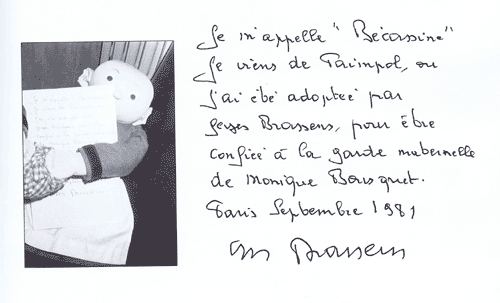 Je m'appelle "Bécassine"
Je viens de Paimpol, ou
j'ai été adoptée par
Georges Brassens, pour être
confiée à la garde maternelle
de Monique Bousquet.
Paris Septembre 1981
Brassens